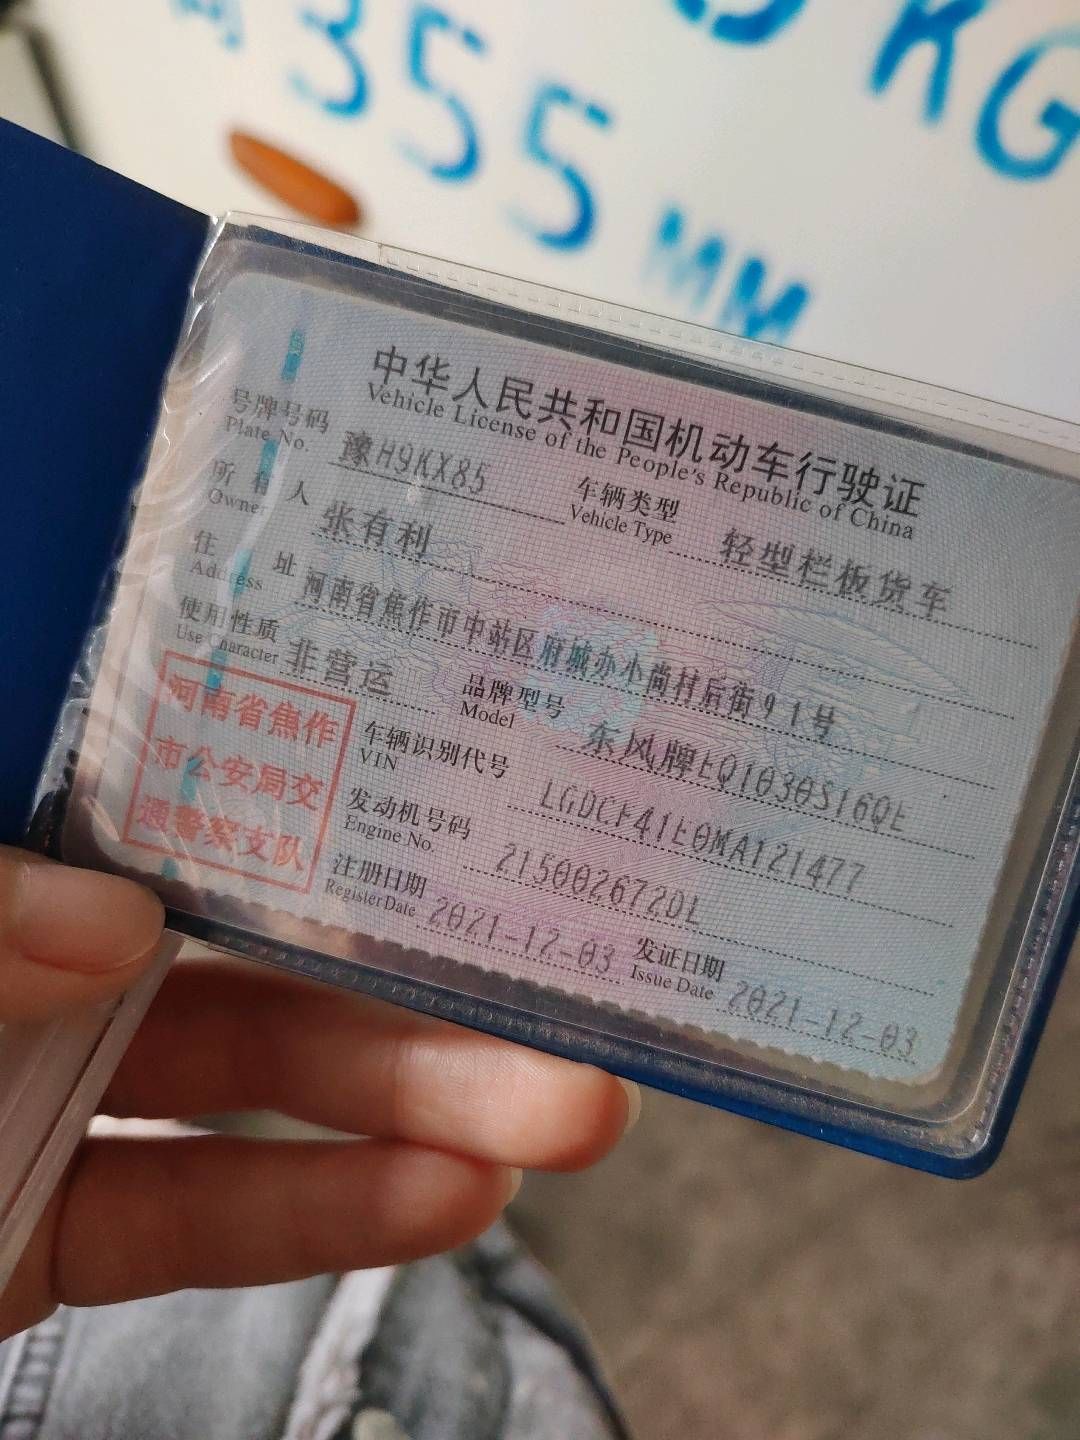 355
MM
KG
中华人民共和国机动车行驶证
Vehicle License of the People's Republic of China
号牌号码 豫H9KX85 车辆类型 轻型栏板货车
Plate No. Vehicle Type
所有人 张有利
Owner
住址 河南省焦作市中站区府城办小尚村后街91号
Address
使用性质 非营运 品牌型号 东风牌EQ1030S16QE
Use Character Model
河南省焦作
市公安局交
通警察支队
车辆识别代号 LGDCF41E0MA121477
VIN
发动机号码 215002672DL
Engine No.
注册日期 2021-12-03 发证日期 2021-12-03
Register Date Issue Date